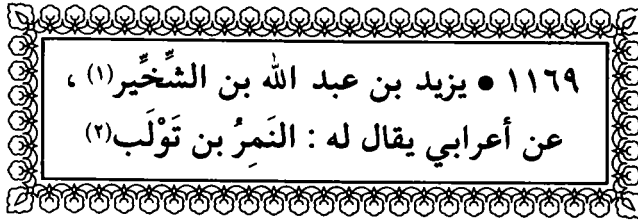 ١١٦٩ • يزيد بن عبد الله بن الشِّخِّير(١) ،
عن أعرابي يقال له : النَمِرُ بن تَوْلَب(٢)